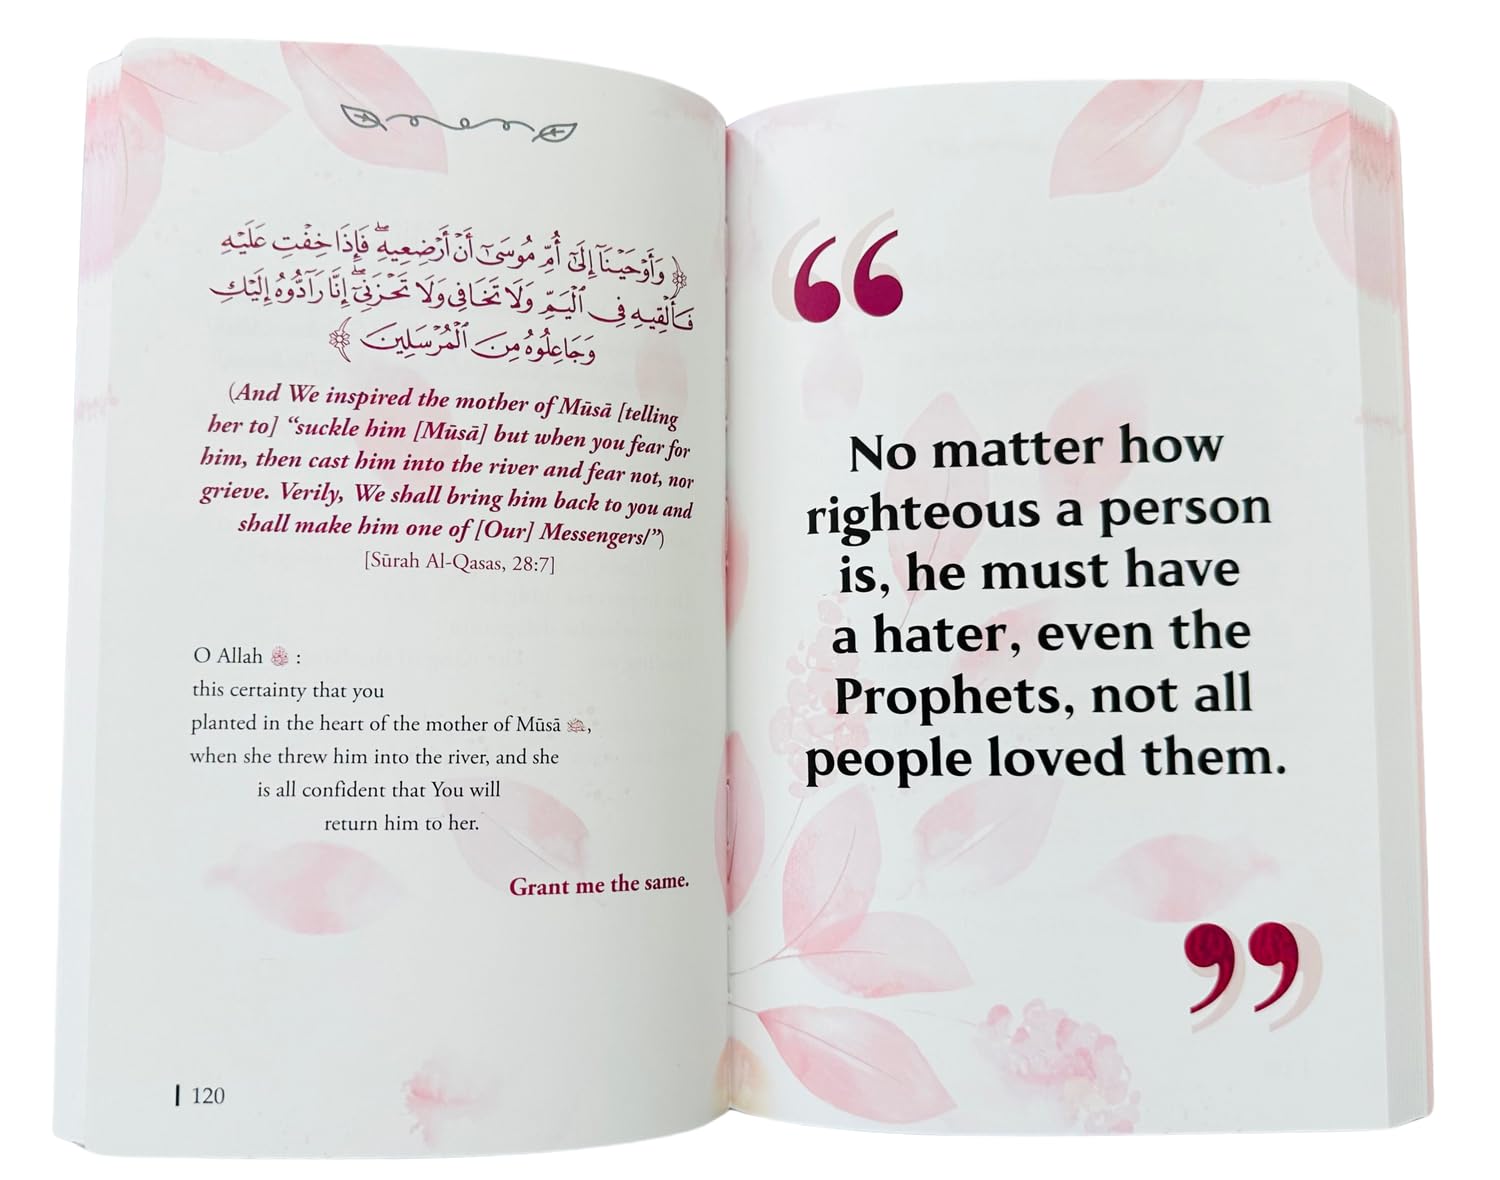 ﴿ وَأَوْحَيْنَآ إِلَىٰٓ أُمِّ مُوسَىٰٓ أَنْ أَرْضِعِيهِ ۖ فَإِذَا خِفْتِ عَلَيْهِ
فَأَلْقِيهِ فِى ٱلْيَمِّ وَلَا تَخَافِى وَلَا تَحْزَنِىٓ ۖ إِنَّا رَآدُّوهُ إِلَيْكِ
وَجَاعِلُوهُ مِنَ ٱلْمُرْسَلِينَ ﴾
(And We inspired the mother of Mūsā [telling
her to] “suckle him [Mūsā] but when you fear for
him, then cast him into the river and fear not, nor
grieve. Verily, We shall bring him back to you and
shall make him one of [Our] Messengers/”)
[Sūrah Al-Qasas, 28:7]
O Allah :
this certainty that you
planted in the heart of the mother of Mūsā ,
when she threw him into the river, and she
is all confident that You will
return him to her.
Grant me the same.
120
“
No matter how
righteous a person
is, he must have
a hater, even the
Prophets, not all
people loved them.
”